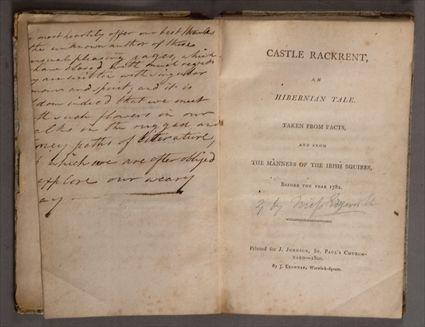 most heartily offer our best thanks
the unknown author of these
pleasing pages, which
have closed with much regret
are written with singular
and spirit; and it is
indeed that we meet
such flowers in our
walks in the rugged and
paths of literature,
which we are often obliged
explore our weary
way
CASTLE RACKRENT,
AN
HIBERNIAN TALE.
TAKEN FROM FACTS,
AND FROM
THE MANNERS OF THE IRISH SQUIRES,
BEFORE THE YEAR 1782.
by Miss Edgeworth
Printed for J. JOHNSON, ST. PAUL'S CHURCH-
YARD—1800.
By J. CROWDER, Warwick-square.